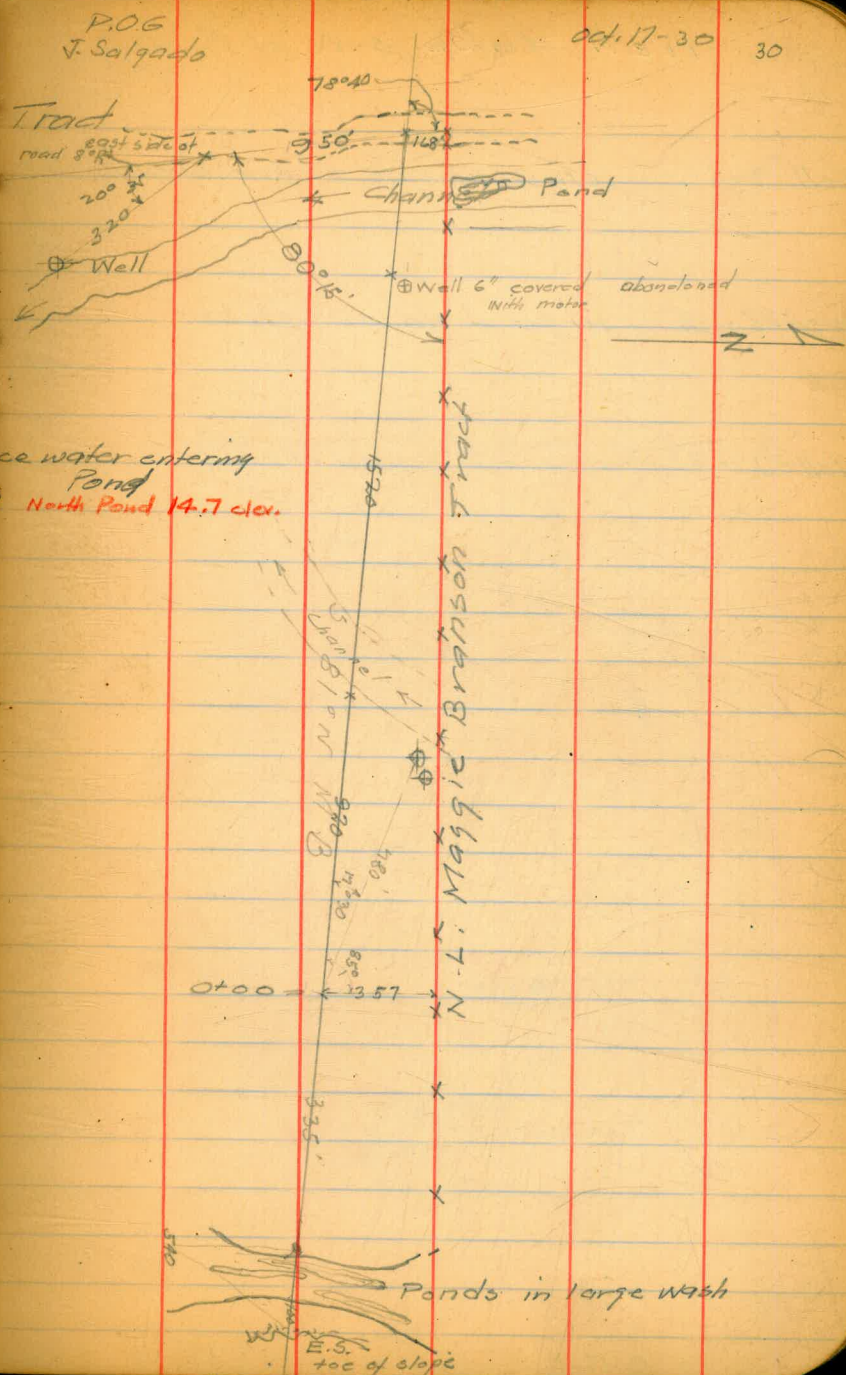 P.O.G
J. Salgado
Oct. 17-30
30
78°40
Tract
east side of
road
950'
168
20°
320
Channel
Pond
Well
80°15'
Well 6" covered abandoned
With motor
N
ce water entering
Pond
North Pond 14.7 elev.
1520
Channel
N.L. Maggie Branson Tract
920
780'
85°
0+00
357
335'
540
Ponds in large wash
E.S.
toe of slope